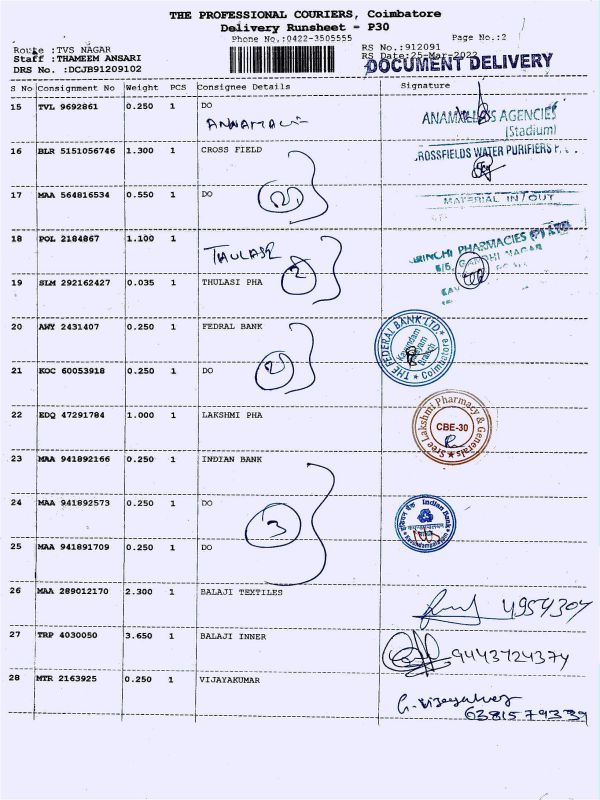 THE PROFESSIONAL COURIERS, Coimbatore
Delivery Runsheet - P30
Phone No.:0422-3505555 Page No.:2
Route :TVS NAGAR RS No.:912091
Staff :THAMEEM ANSARI RS Date:25-Mar-2022
DRS No. :DCJB91209102 DOCUMENT DELIVERY
S No Consignment No Weight PCS Consignee Details Signature
15 TVL 9692861 0.250 1 DO
ANAMALLAIS AGENCIES
(Stadium)
16 BLR 5151056746 1.300 1 CROSS FIELD
ROSSFIELDS WATER PURIFIERS P.
17 MAA 564816534 0.550 1 DO 2 MATERIAL IN/OUT
18 POL 2184867 1.100 1 THULASI
PHARMACIES
GANDHI NAGAR
19 SLM 292162427 0.035 1 THULASI PHA 2
20 AWY 2431407 0.250 1 FEDRAL BANK
THE FEDERAL BANK LTD.
Branch
Coimbatore
21 KOC 60053918 0.250 1 DO 2
22 EDQ 47291784 1.000 1 LAKSHMI PHA
Sree Lakshmi Pharmacy & Generals
CBE-30
23 MAA 941892166 0.250 1 INDIAN BANK
24 MAA 941892573 0.250 1 DO 3
इंडियन बैंक Indian Bank
25 MAA 941891709 0.250 1 DO
26 MAA 289012170 2.300 1 BALAJI TEXTILES
27 TRP 4030050 3.650 1 BALAJI INNER 9443724374
28 MTR 2163925 0.250 1 VIJAYAKUMAR